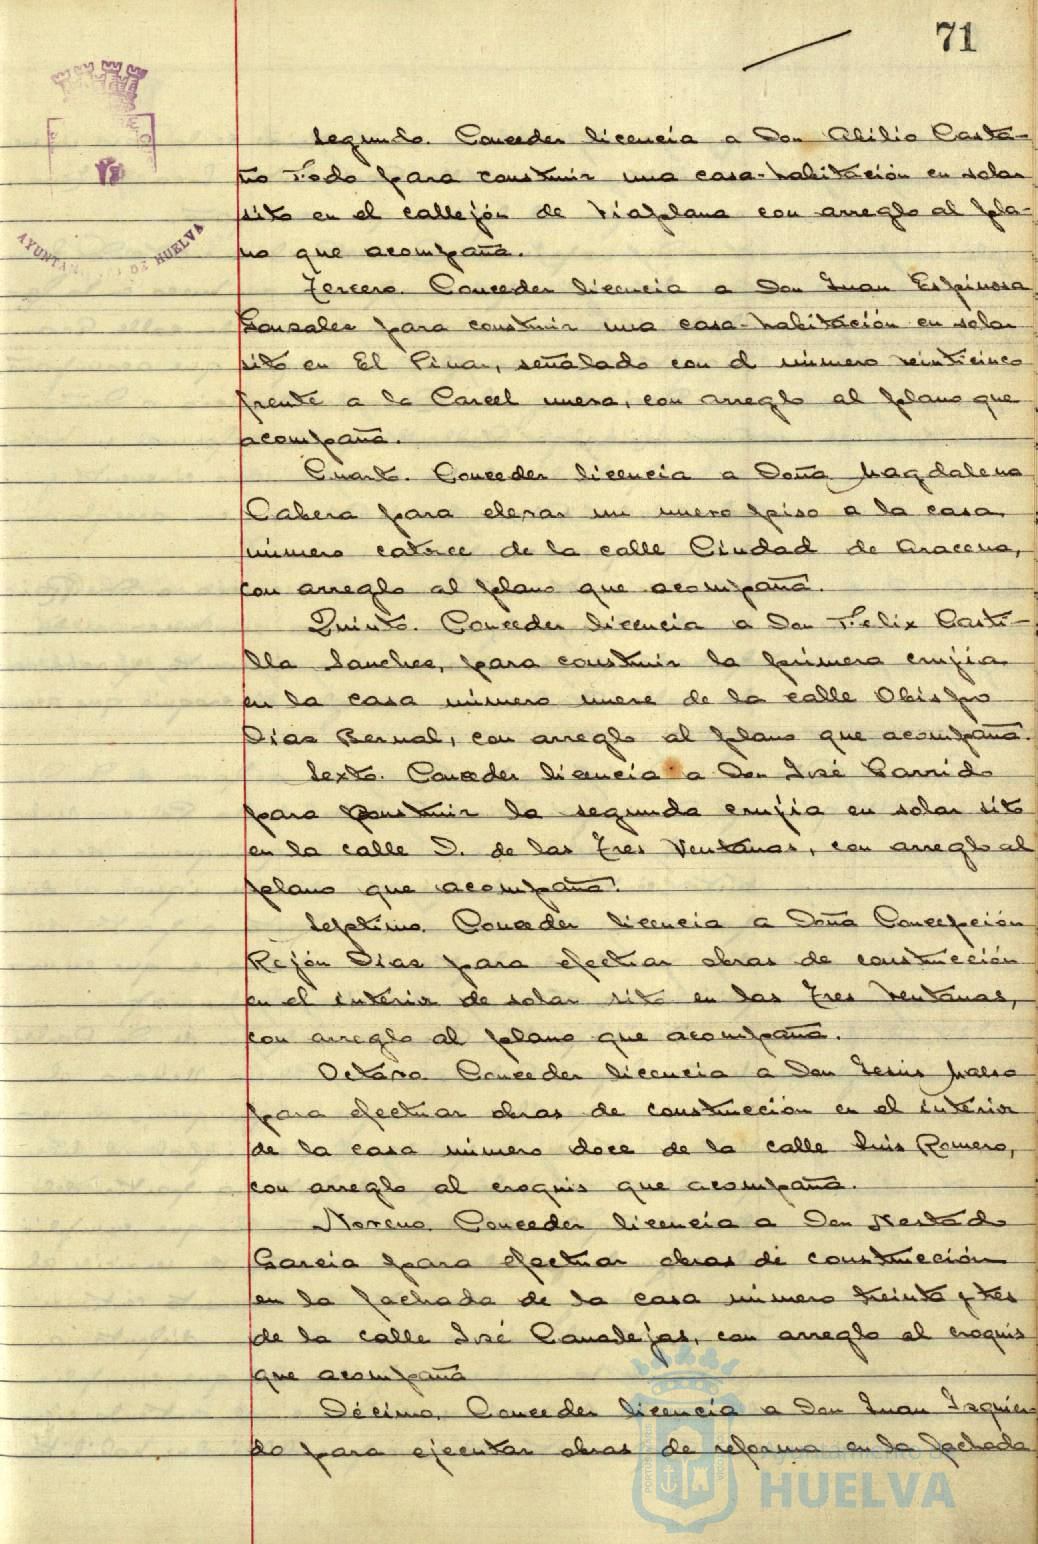 71
AYUNTAMIENTO DE HUELVA
Segundo. Conceder licencia a Don Abilio Casta-
ño Fedo para construir una casa-habitación en solar
sito en el callejón de Viaplana con arreglo al pla-
no que acompaña.
Tercero. Conceder licencia a Don Juan Espinosa
Gonzalez para construir una casa-habitación en solar
sito en El Pinar, señalado con el número veinticinco
frente a la Carcel nueva, con arreglo al plano que
acompaña.
Cuarto. Conceder licencia a Doña Magdalena
Cabera para elevar un nuevo piso a la casa
número catorce de la calle Ciudad de Aracena,
con arreglo al plano que acompaña.
Quinto. Conceder licencia a Don Felix Casti-
lla Sanchez, para construir la primera crujia
en la casa número nueve de la calle Obispo
Diaz Bernal, con arreglo al plano que acompaña.
Sexto. Conceder licencia a Don José Garrido
para construir la segunda crujia en solar sito
en la calle D. de las Tres Ventanas, con arreglo al
plano que acompaña.
Septimo. Conceder licencia a Doña Concepción
Rejón Diaz para efectuar obras de construcción
en el interior de solar sito en las Tres Ventanas,
con arreglo al plano que acompaña.
Octavo. Conceder licencia a Don Jesús
para efectuar obras de construcción en el interior
de la casa número doce de la calle Luis Romero,
con arreglo al croquis que acompaña.
Noveno. Conceder licencia a Don
Garcia para efectuar obras de construcción
en la fachada de la casa número treinta y tres
de la calle José Canalejas, con arreglo al croquis
que acompaña
Décimo. Conceder licencia a Don Juan Izquier-
do para ejecutar obras de reforma en la fachada
Ayuntamiento de
HUELVA